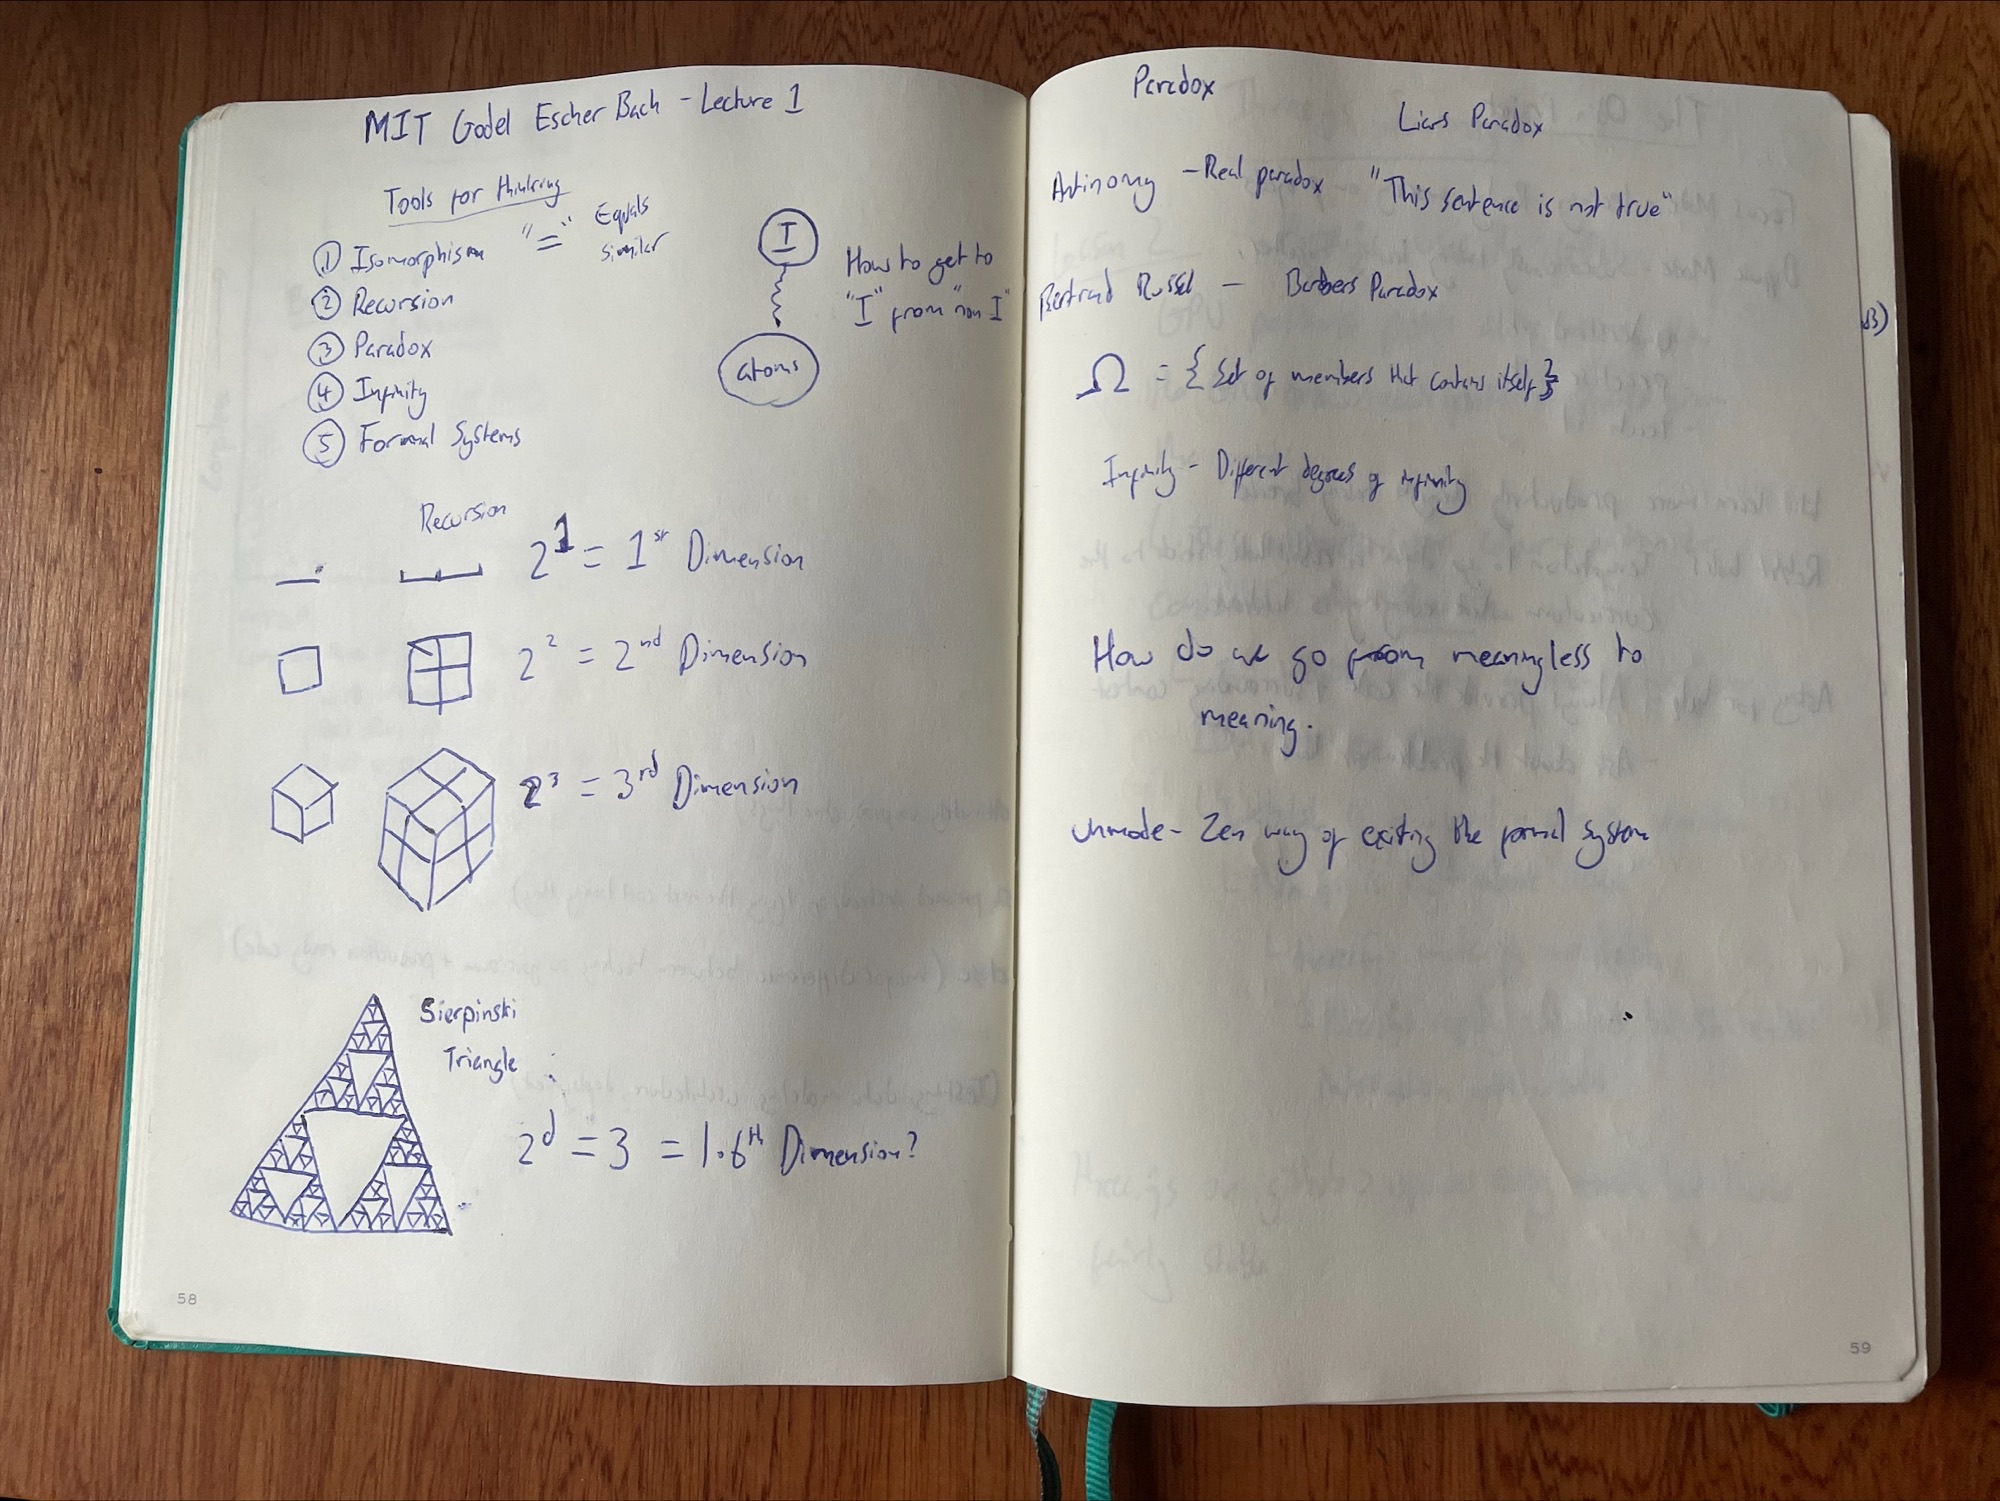 MIT Godel Escher Bach - Lecture 1
Tools for thinking
① Isomorphism "=" Equals
similar
② Recursion
③ Paradox
④ Infinity
⑤ Formal Systems
I
How to get to
"I" from "non I"
atoms
Recursion
2^1 = 1st Dimension
2^2 = 2nd Dimension
2^3 = 3rd Dimension
Sierpinski
Triangle
2^d = 3 = 1.6th Dimension?
58
Paradox
Liars Paradox
Antinomy - Real paradox "This sentence is not true"
Bertrand Russel - Barbers Paradox
Ω = { Set of members that contains itself }
Infinity - Different degrees of infinity
How do we go from meaningless to
meaning.
Unmode - Zen way of exiting the formal system
59